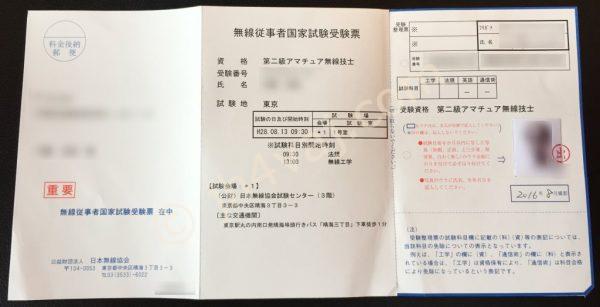 料金後納
郵便
重要
無線従事者国家試験受験票 在中
公益財団法人 日本無線協会
〒104-0053 東京都中央区晴海3丁目3-3
TEL 03(3533)-6022
無線従事者国家試験受験票
資格 第二級アマチュア無線技士
受験番号
氏名
試験地 東京
試験の日及び開始時刻
試験場
会場 試験室
H28.08.13 09:30 *1 1号室
※試験科目別開始時刻
09:30 法規
13:00 無線工学
【試験会場:*1】
(公財)日本無線協会試験センター(3階)
東京都中央区晴海3丁目3-3
【主な交通機関】
東京駅丸の内南口発晴海埠頭行きバス「晴海三丁目」下車徒歩1分
受験整理票
※
※
フリガナ
氏名
受験番号
工学 法規 英語 通信術
試験科目
受験資格 第二級アマチュア無線技士
2016年8月撮影
(注)
受験整理票の試験科目欄に記載の(科)(資)等の表示については、
当該科目の免除についての表示となっています。
例えば、「工学」の欄に(資)、「通信術」の欄に(科)と表示
されている場合は、「工学」は資格保有により、「通信術」は科目合格
により免除になっているという表記です。